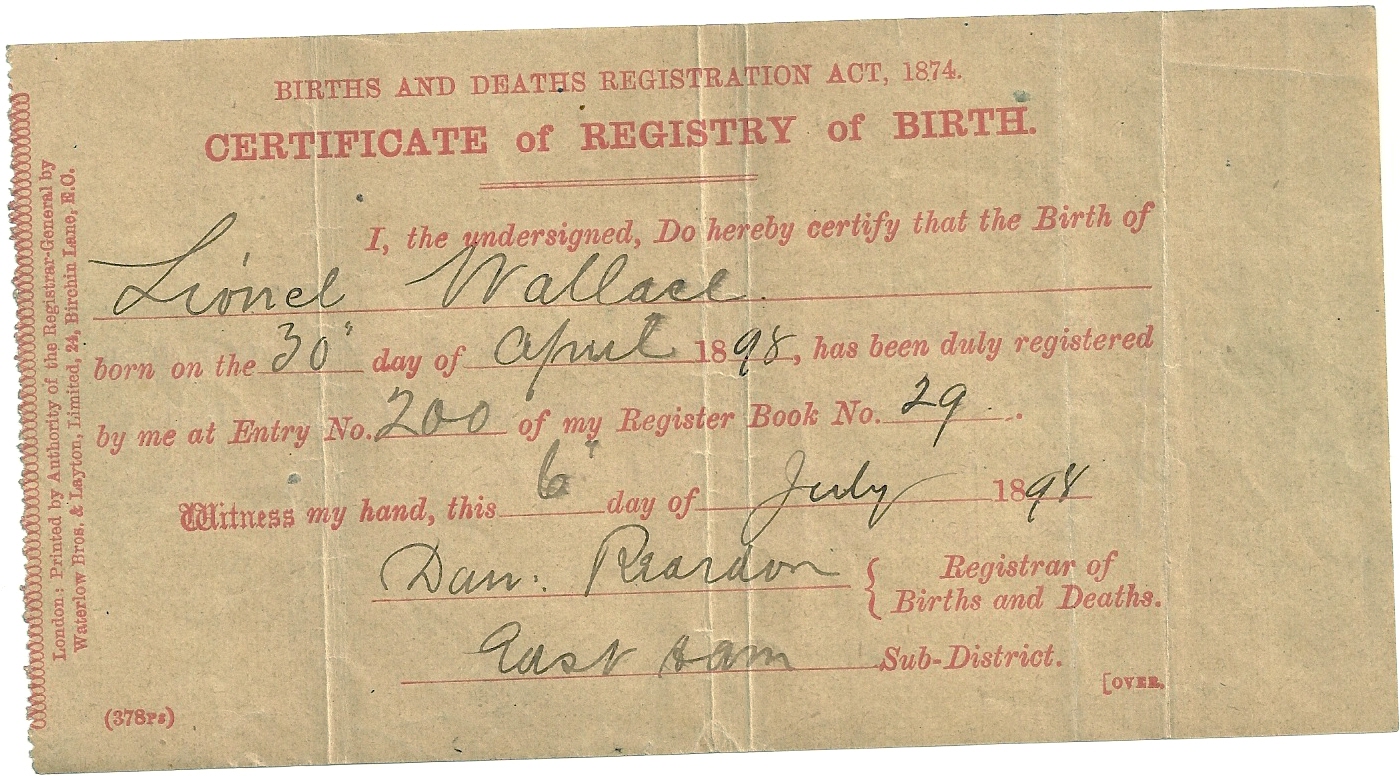 BIRTHS AND DEATHS REGISTRATION ACT, 1874.
CERTIFICATE of REGISTRY of BIRTH.
I, the undersigned, Do hereby certify that the Birth of
Lionel Wallace.
born on the 30" day of April 1898, has been duly registered
by me at Entry No. 200 of my Register Book No. 29.
Witness my hand, this 6" day of July 1898
Dan: Reardon { Registrar of
Births and Deaths.
East Ham Sub-District.
[OVER.
(378Ps)
London: Printed by Authority of the Registrar-General by
Waterlow Bros. & Layton, Limited, 24, Birchin Lane, E.C.